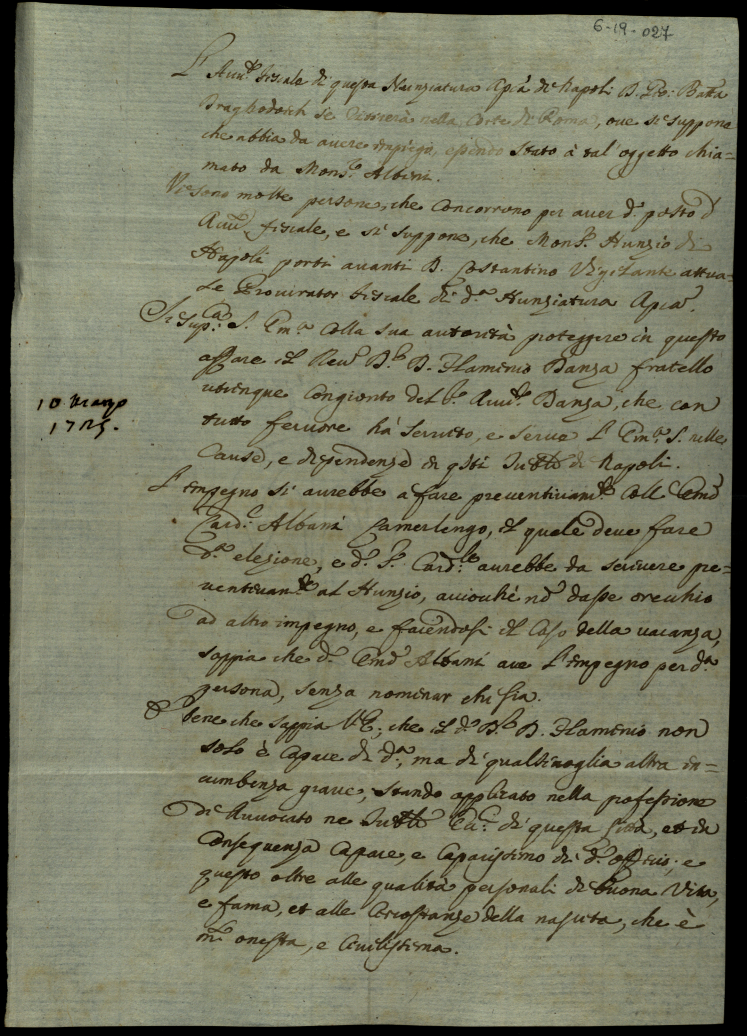 6-19-027
L'Avv.to fiscale di questa Nunziatura Ap.ca di Napoli D. Gio: Batta
se ritroverà nella Corte di Roma, ove si suppone
che abbia da avere impiego, essendo stato à tal'oggetto chia=
mato da Mons.r Albini.
Vi sono molte persone, che concorrono per aver d.o posto d'
Avv.to fiscale, e si suppone, che Mons.r Nunzio di
Napoli porti avanti D. Costantino Vigilante attua=
le Procurator fiscale di d.a Nunziatura Ap.ca.
Si sup.ca S. Em.a colla sua autorità proteggere in questo
affare il Rev.do D.r D. Flaminio Danza fratello
utrinque congionto del S.r Avv.to Danza, che con
tutto fervore hà servito, e serve l'Em.a S. nelle
Cause, e dipendenze in q.sti Tribli di Napoli.
10 Marzo
1725.
L'impegno si avrebbe a fare preventivam.te coll'Em.o
Card: Albani Camerlengo, il quale deve fare
d.a elezione, e d.o S.r Card.le avrebbe da scrivere pre=
ventivam.te al Nunzio, acciochè nō dasse orecchio
ad altro impegno, e facendosi il caso della vacanza,
sappia che d.o Em.o Albani ave l'impegno per d.a
persona, senza nominar chi sia.
E bene che sappia V.E., che il d.o D.r D. Flaminio non
solo è capace di d.a, ma di qualsivoglia altra in=
cumbenza grave, stando applicato nella professione
di Avvocato ne Tribli Ecc.ci di questa Città, et in
conseguenza capace, e capacissimo di d.o officio; e
questo oltre alle qualità personali di buona vita,
e fama, et alle circostanze della nascita, che è
m.to onesta, e civilissima.